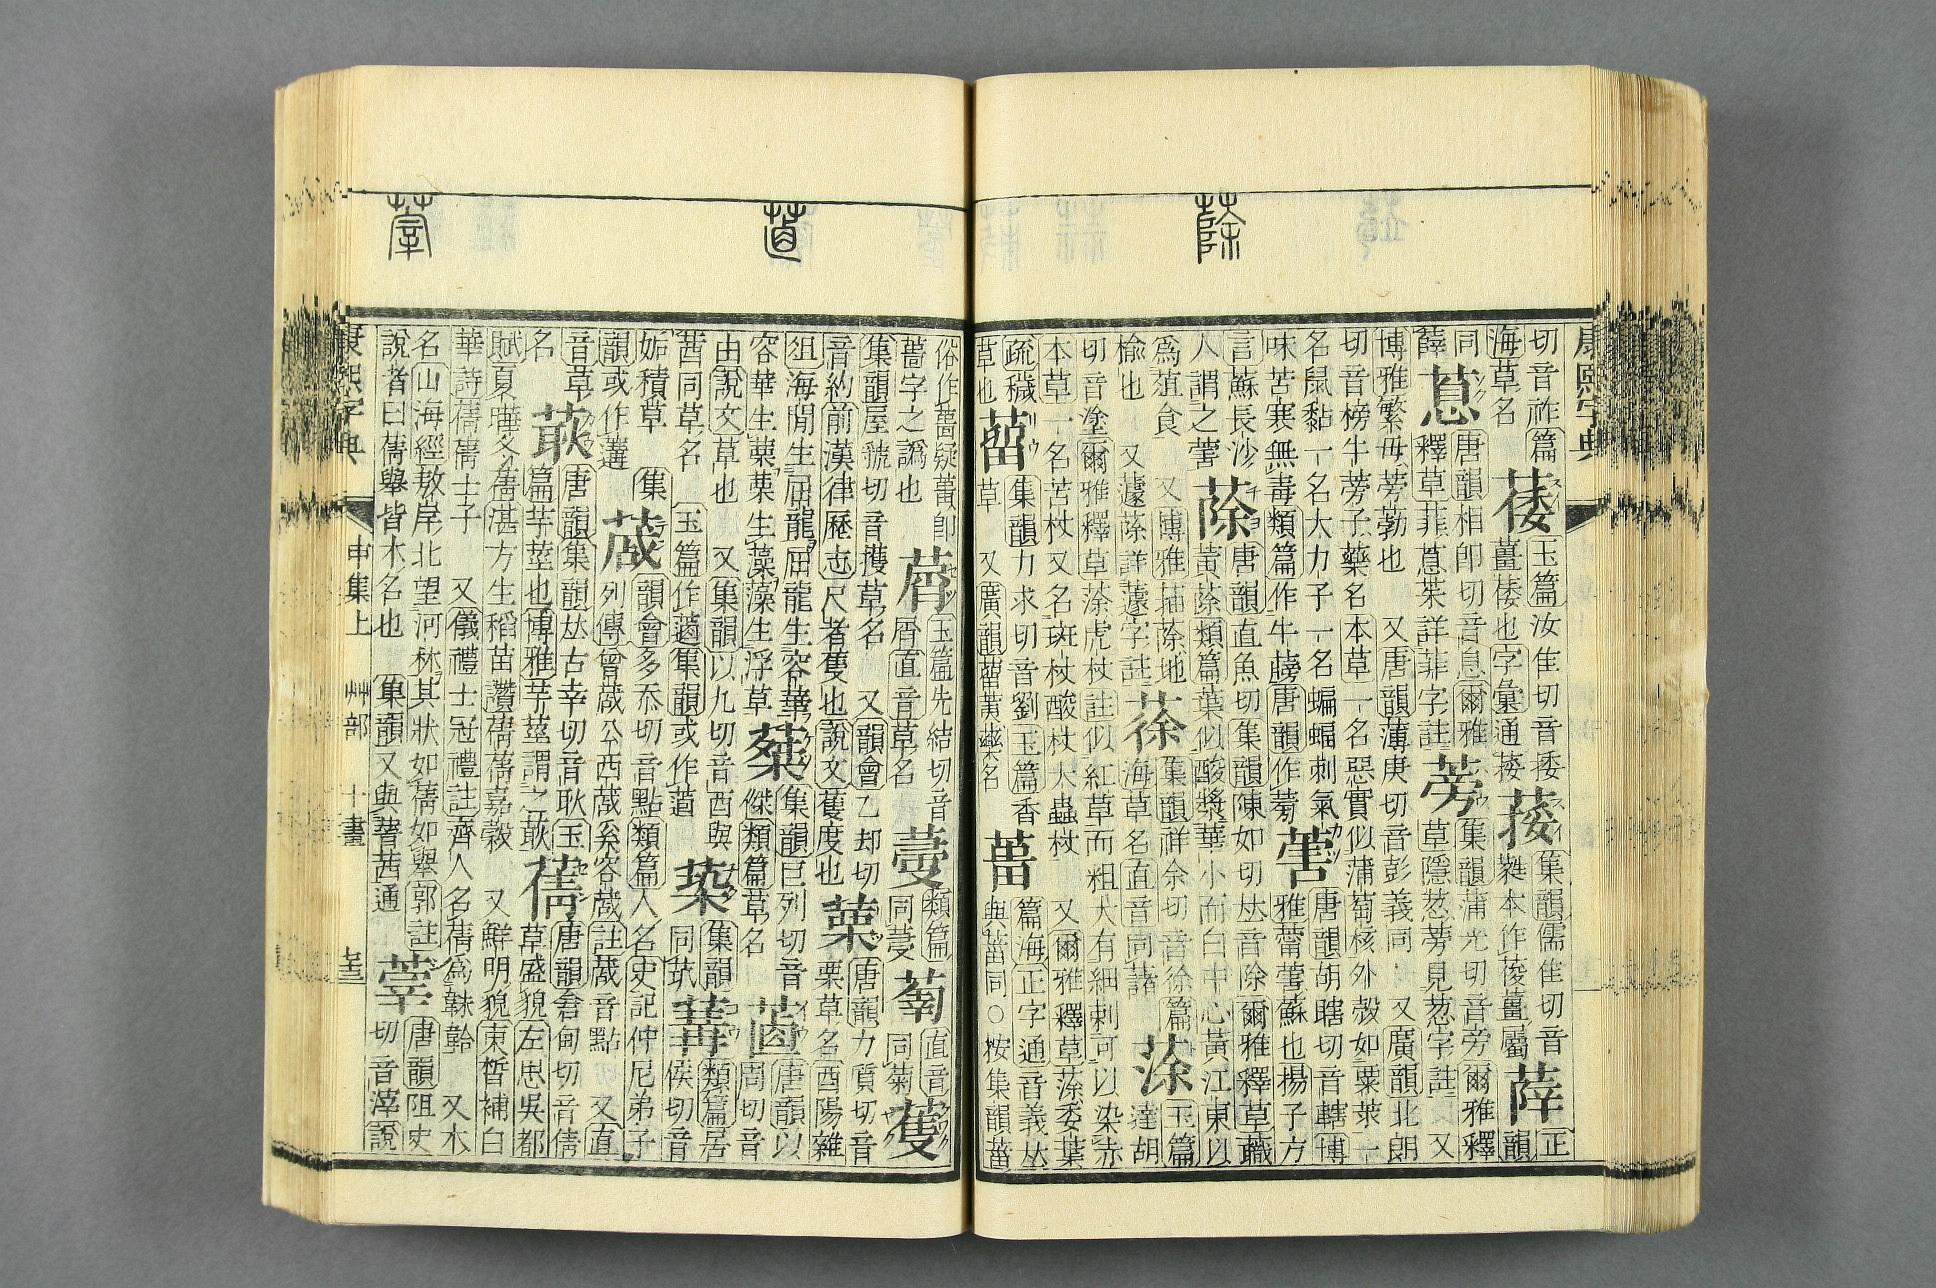 康熙字典
蒢
切音祚篇
海草名
玉篇汝隹切音捼
集韻儒隹切音
正
韻
同
薛
蒠
唐韻相卽切音息爾雅
釋草菲蒠菜詳菲字註
蒡
集韻蒲光切音旁爾雅釋
草隱荵蒡見荵字註 又
博雅繁母蒡葧也 又唐韻薄庚切音彭義同 又廣韻北朗
切音榜牛蒡子藥名本草一名惡實似蒲萄核外殼如粟莱一
名鼠黏一名大力子一名蝙蝠刺氣
味苦寒無毒類篇作牛唐韻作蒡
唐韻胡瞎切音轄博
雅蘇也揚子方
言蘇長沙
人謂之
蒢
唐韻直魚切集韻陳如切𠀤音除爾雅釋草蘵
黃蒢類篇葉似酸漿華小而白中心黃江東以
爲葅食 又博雅菗蒢地
榆也 又蘧蒢詳蘧字註
蒣
集韻祥余切音徐篇
海草名直音同藷
蒤
玉篇
達胡
切音塗爾雅釋草蒤虎杖註似紅草而粗大有細刺可以染赤
本草一名苦杖又名斑杖酸杖大蟲杖 又爾雅釋草蒤委葉
疏穢
草也
蒥
集韻力求切音劉玉篇香
草 又廣韻蒥藥名
篇海正字通音義𠀤
與同○按集韻
蓨
俗作疑卽
薔字之譌也
玉篇先結切音
屑直音草名
類篇
同蔓
直音
同菊
蒦
集韻屋虢切音擭草名 又韻會乙却切
音約前漢律歷志尺者蒦也說文蒦度也
唐韻力質切音
栗草名酉陽雜
俎海閒生屈龍屈龍生容華
容華生蔈蔈生藻藻生浮草
集韻巨列切音
傑類篇草名
唐韻以
周切音
由說文草也 又集韻以九切音酉與
茜同草名 玉篇作集韻或作
集韻
同
類篇居
侯切音
姤積草 集
韻或作
蒧
韻會多忝切音點類篇人名史記仲尼弟子
列傳曾蒧公西蒧奚容蒧註蒧音點 又直
音草
名
唐韻集韻𠀤古幸切音耿玉
篇芋莖也博雅芋莖謂之
蒨
唐韻倉甸切音倩
草盛貌左思吳都
賦夏曄冬蒨湛方生稻苗讚蒨蒨嘉穀 又鮮明貌束晳補白
華詩蒨蒨士子 又儀禮士冠禮註齊人名蒨爲韎韐 又木
名山海經敖岸北望河林其狀如蒨如舉郭註
說者曰蒨舉皆木名也 集韻又與菁茜通
唐韻阻史
切音滓說
康熙字典 申集上 艸部 十畫